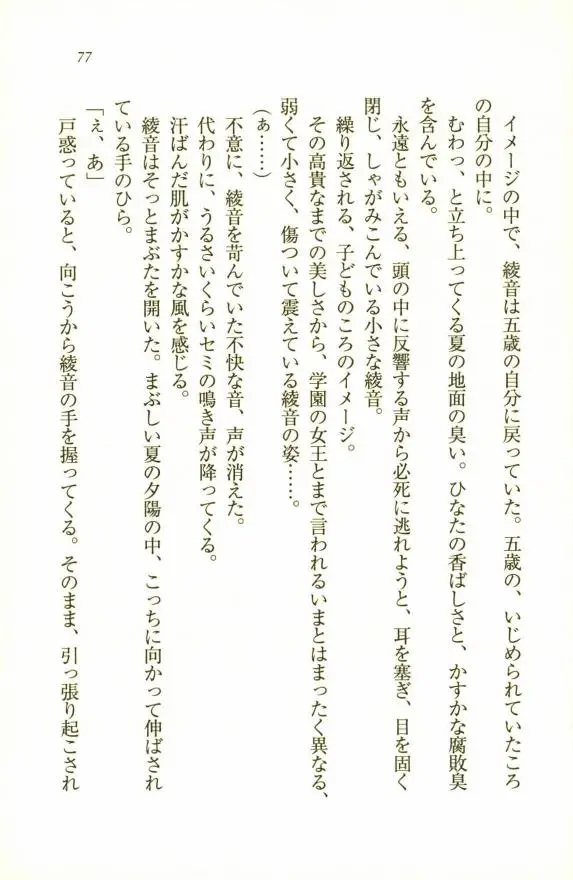 77
イメージの中で、綾音は五歳の自分に戻っていた。五歳の、いじめられていたころ
の自分の中に。
むわっ、と立ち上ってくる夏の地面の臭い。ひなたの香ばしさと、かすかな腐敗臭
を含んでいる。
永遠ともいえる、頭の中に反響する声から必死に逃れようと、耳を塞ぎ、目を固く
閉じ、しゃがみこんでいる小さな綾音。
繰り返される、子どものころのイメージ。
その高貴なまでの美しさから、学園の女王とまで言われるいまとはまったく異なる、
弱くて小さく、傷ついて震えている綾音の姿……。
(ぁ……)
不意に、綾音を苛んでいた不快な音、声が消えた。
代わりに、うるさいくらいセミの鳴き声が降ってくる。
汗ばんだ肌がかすかな風を感じる。
綾音はそっとまぶたを開いた。まぶしい夏の夕陽の中、こっちに向かって伸ばされ
ている手のひら。
「ぇ、あ」
戸惑っていると、向こうから綾音の手を握ってくる。そのまま、引っ張り起こされ